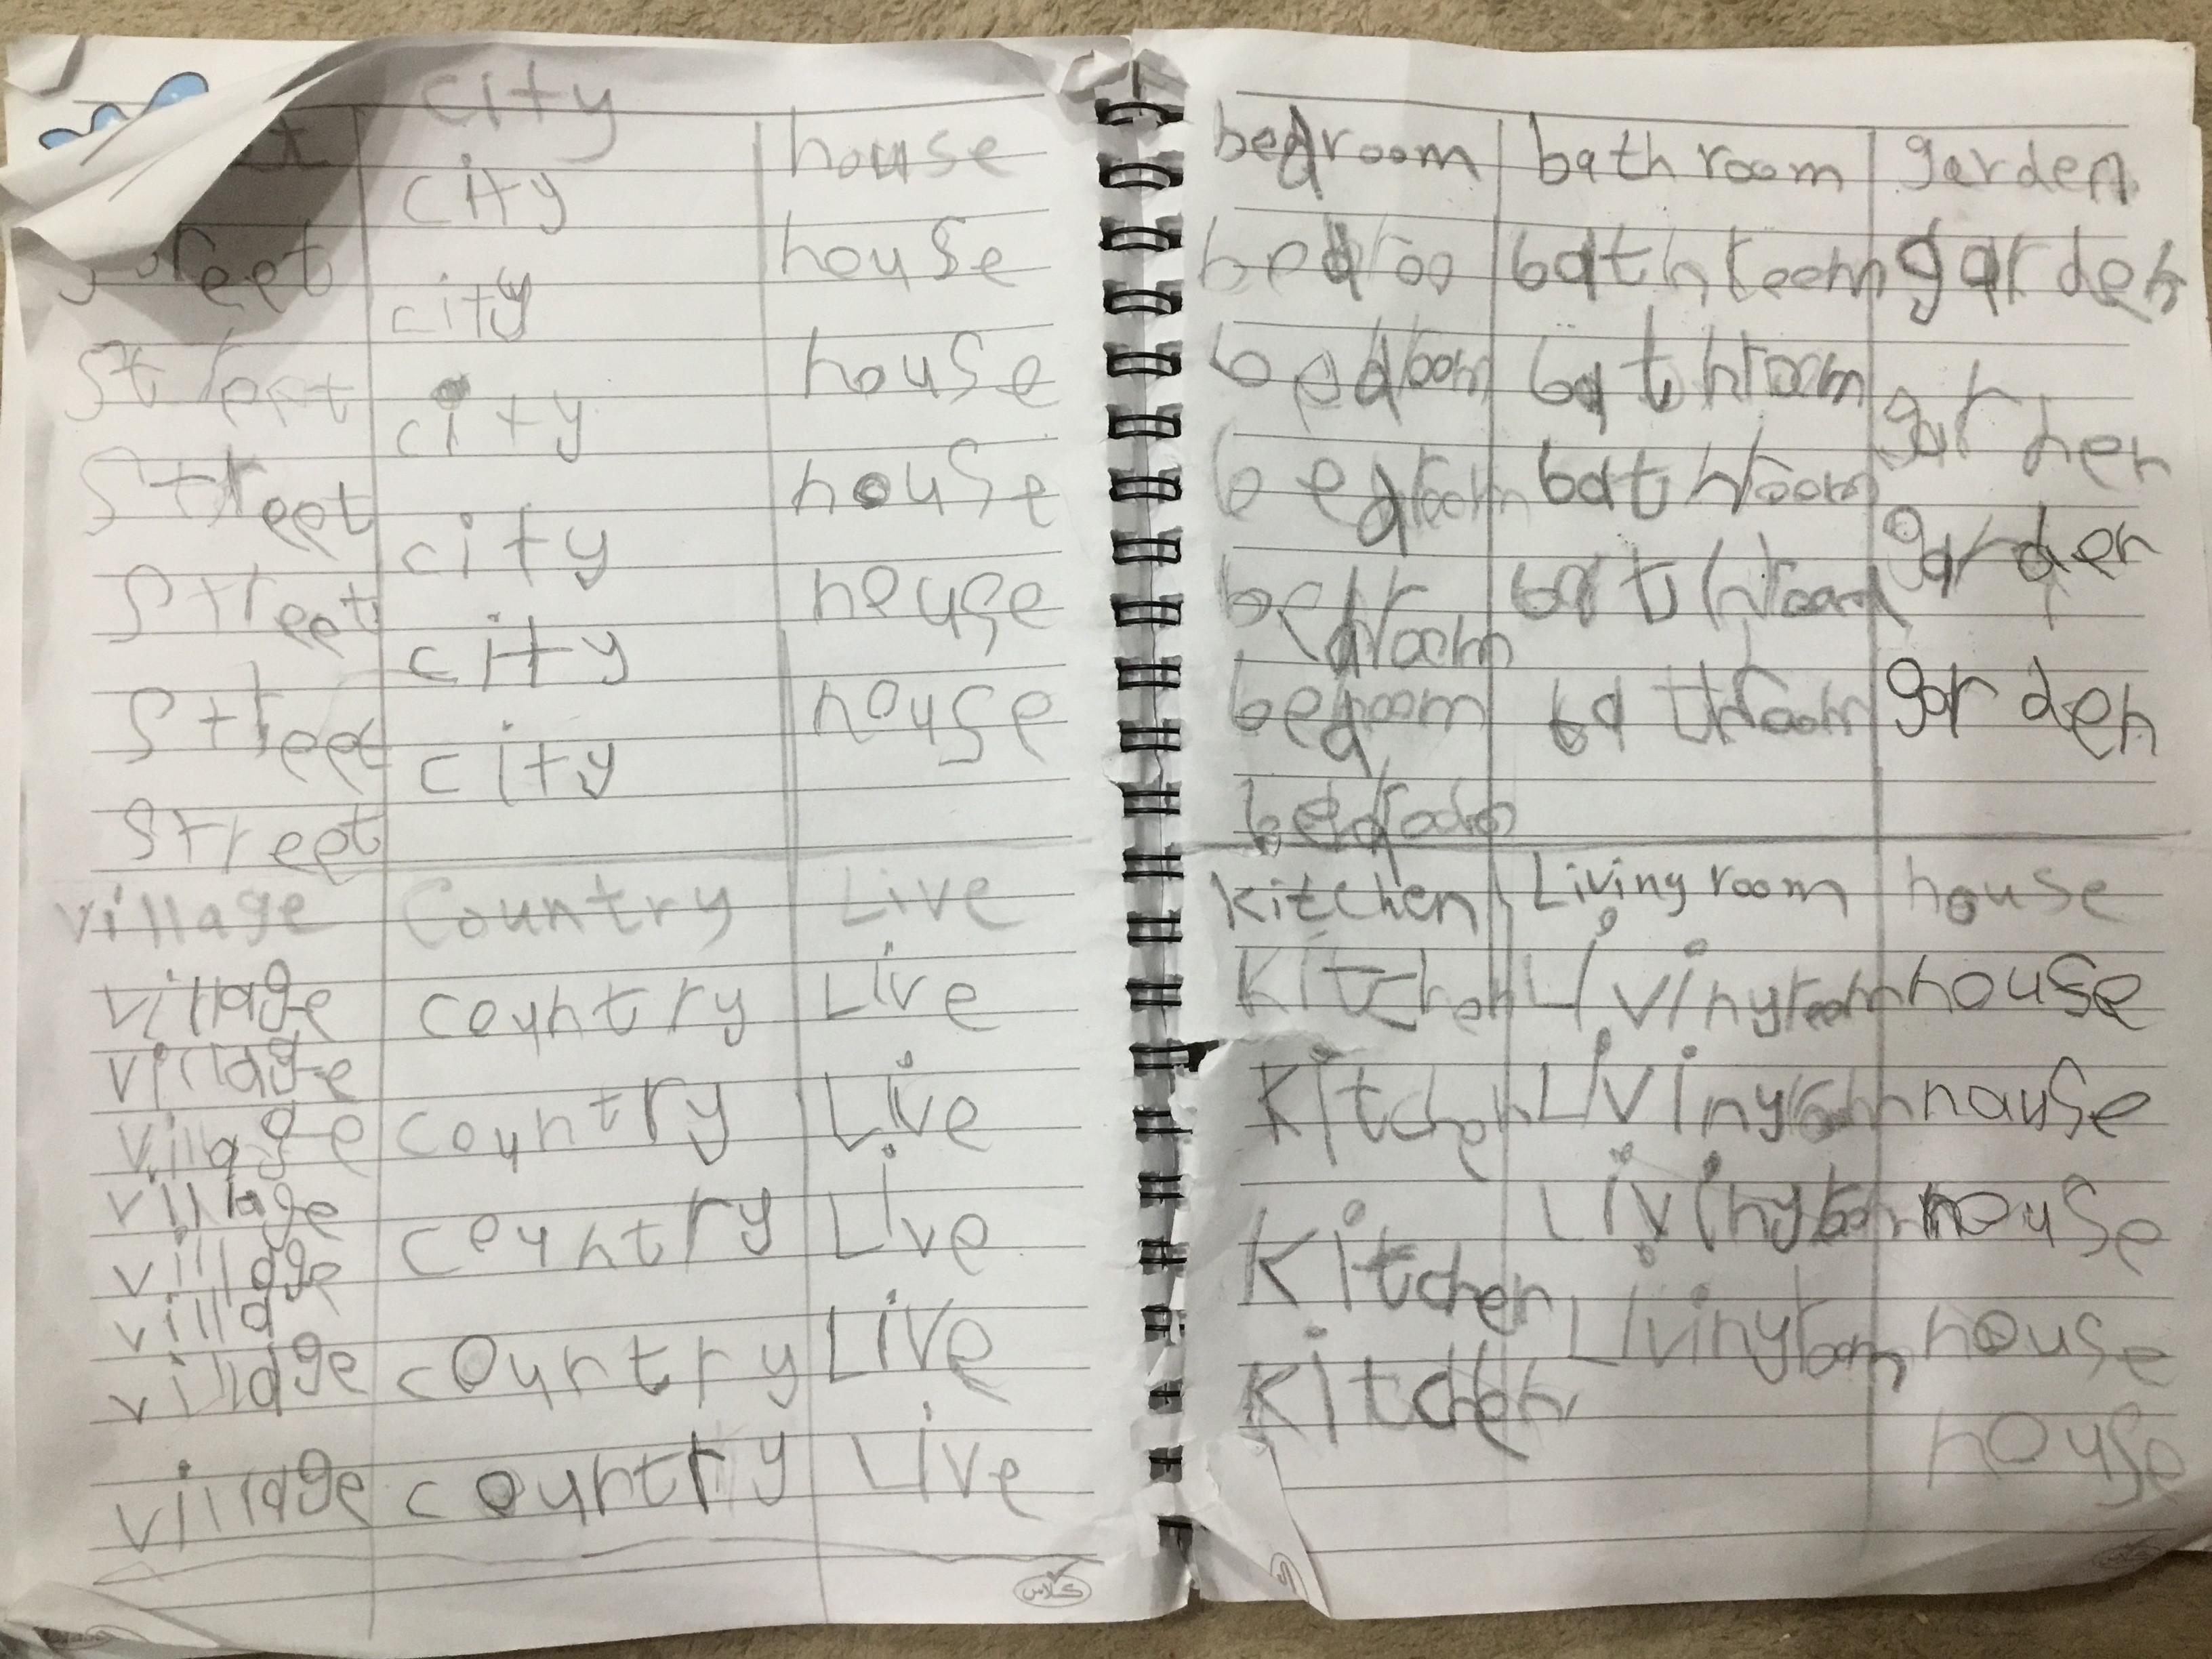 city house
city house
street city house
street city house
street city house
street city house
street city
street
village Country Live
village country Live
village
village country Live
village country Live
village
villa
village country Live
village country Live
كلاس
bedroom bathroom garden
bedroo bathroom garden
bedroom bathroom garden
bedroom bathroom garden
bedroom bathroom
bedroom bathroom garden
kitchen Living room house
Kitchen Livingroom house
Kitchen Livingroom house
Kitchen Livingroom house
Kitchen Livingroom house
house